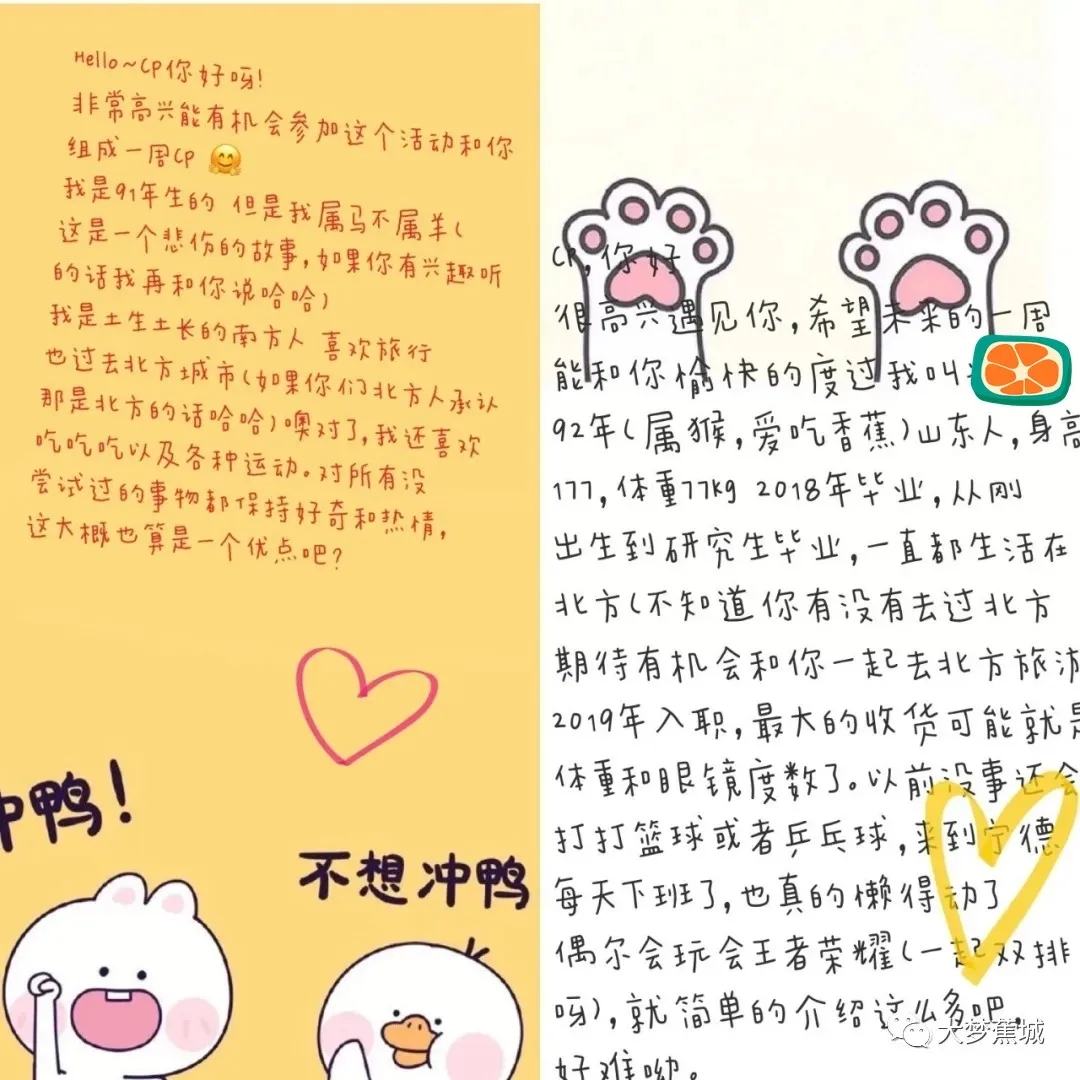 Hello~CP你好呀!
非常高兴能有机会参加这个活动和你
组成一周CP
我是91年生的 但是我属马不属羊(
这是一个悲伤的故事,如果你有兴趣听
的话我再和你说哈哈)
我是土生土长的南方人 喜欢旅行
也过去北方城市(如果你们北方人承认
那是北方的话哈哈)噢对了,我还喜欢
吃吃吃以及各种运动。对所有没
尝试过的事物都保持好奇和热情,
这大概也算是一个优点吧?
冲鸭!
不想冲鸭
CP,你好
很高兴遇见你,希望未来的一周
能和你愉快的度过我叫
92年(属猴,爱吃香蕉)山东人,身高
177,体重77kg 2018年毕业,从刚
出生到研究生毕业,一直都生活在
北方(不知道你有没有去过北方
期待有机会和你一起去北方旅游
2019年入职,最大的收货可能就是
体重和眼镜度数了。以前没事还会
打打篮球或者乒乓球,来到宁德
每天下班了,也真的懒得动了
偶尔会玩会王者荣耀(一起双排
呀),就简单的介绍这么多吧,
好难呦。
大梦蕉城